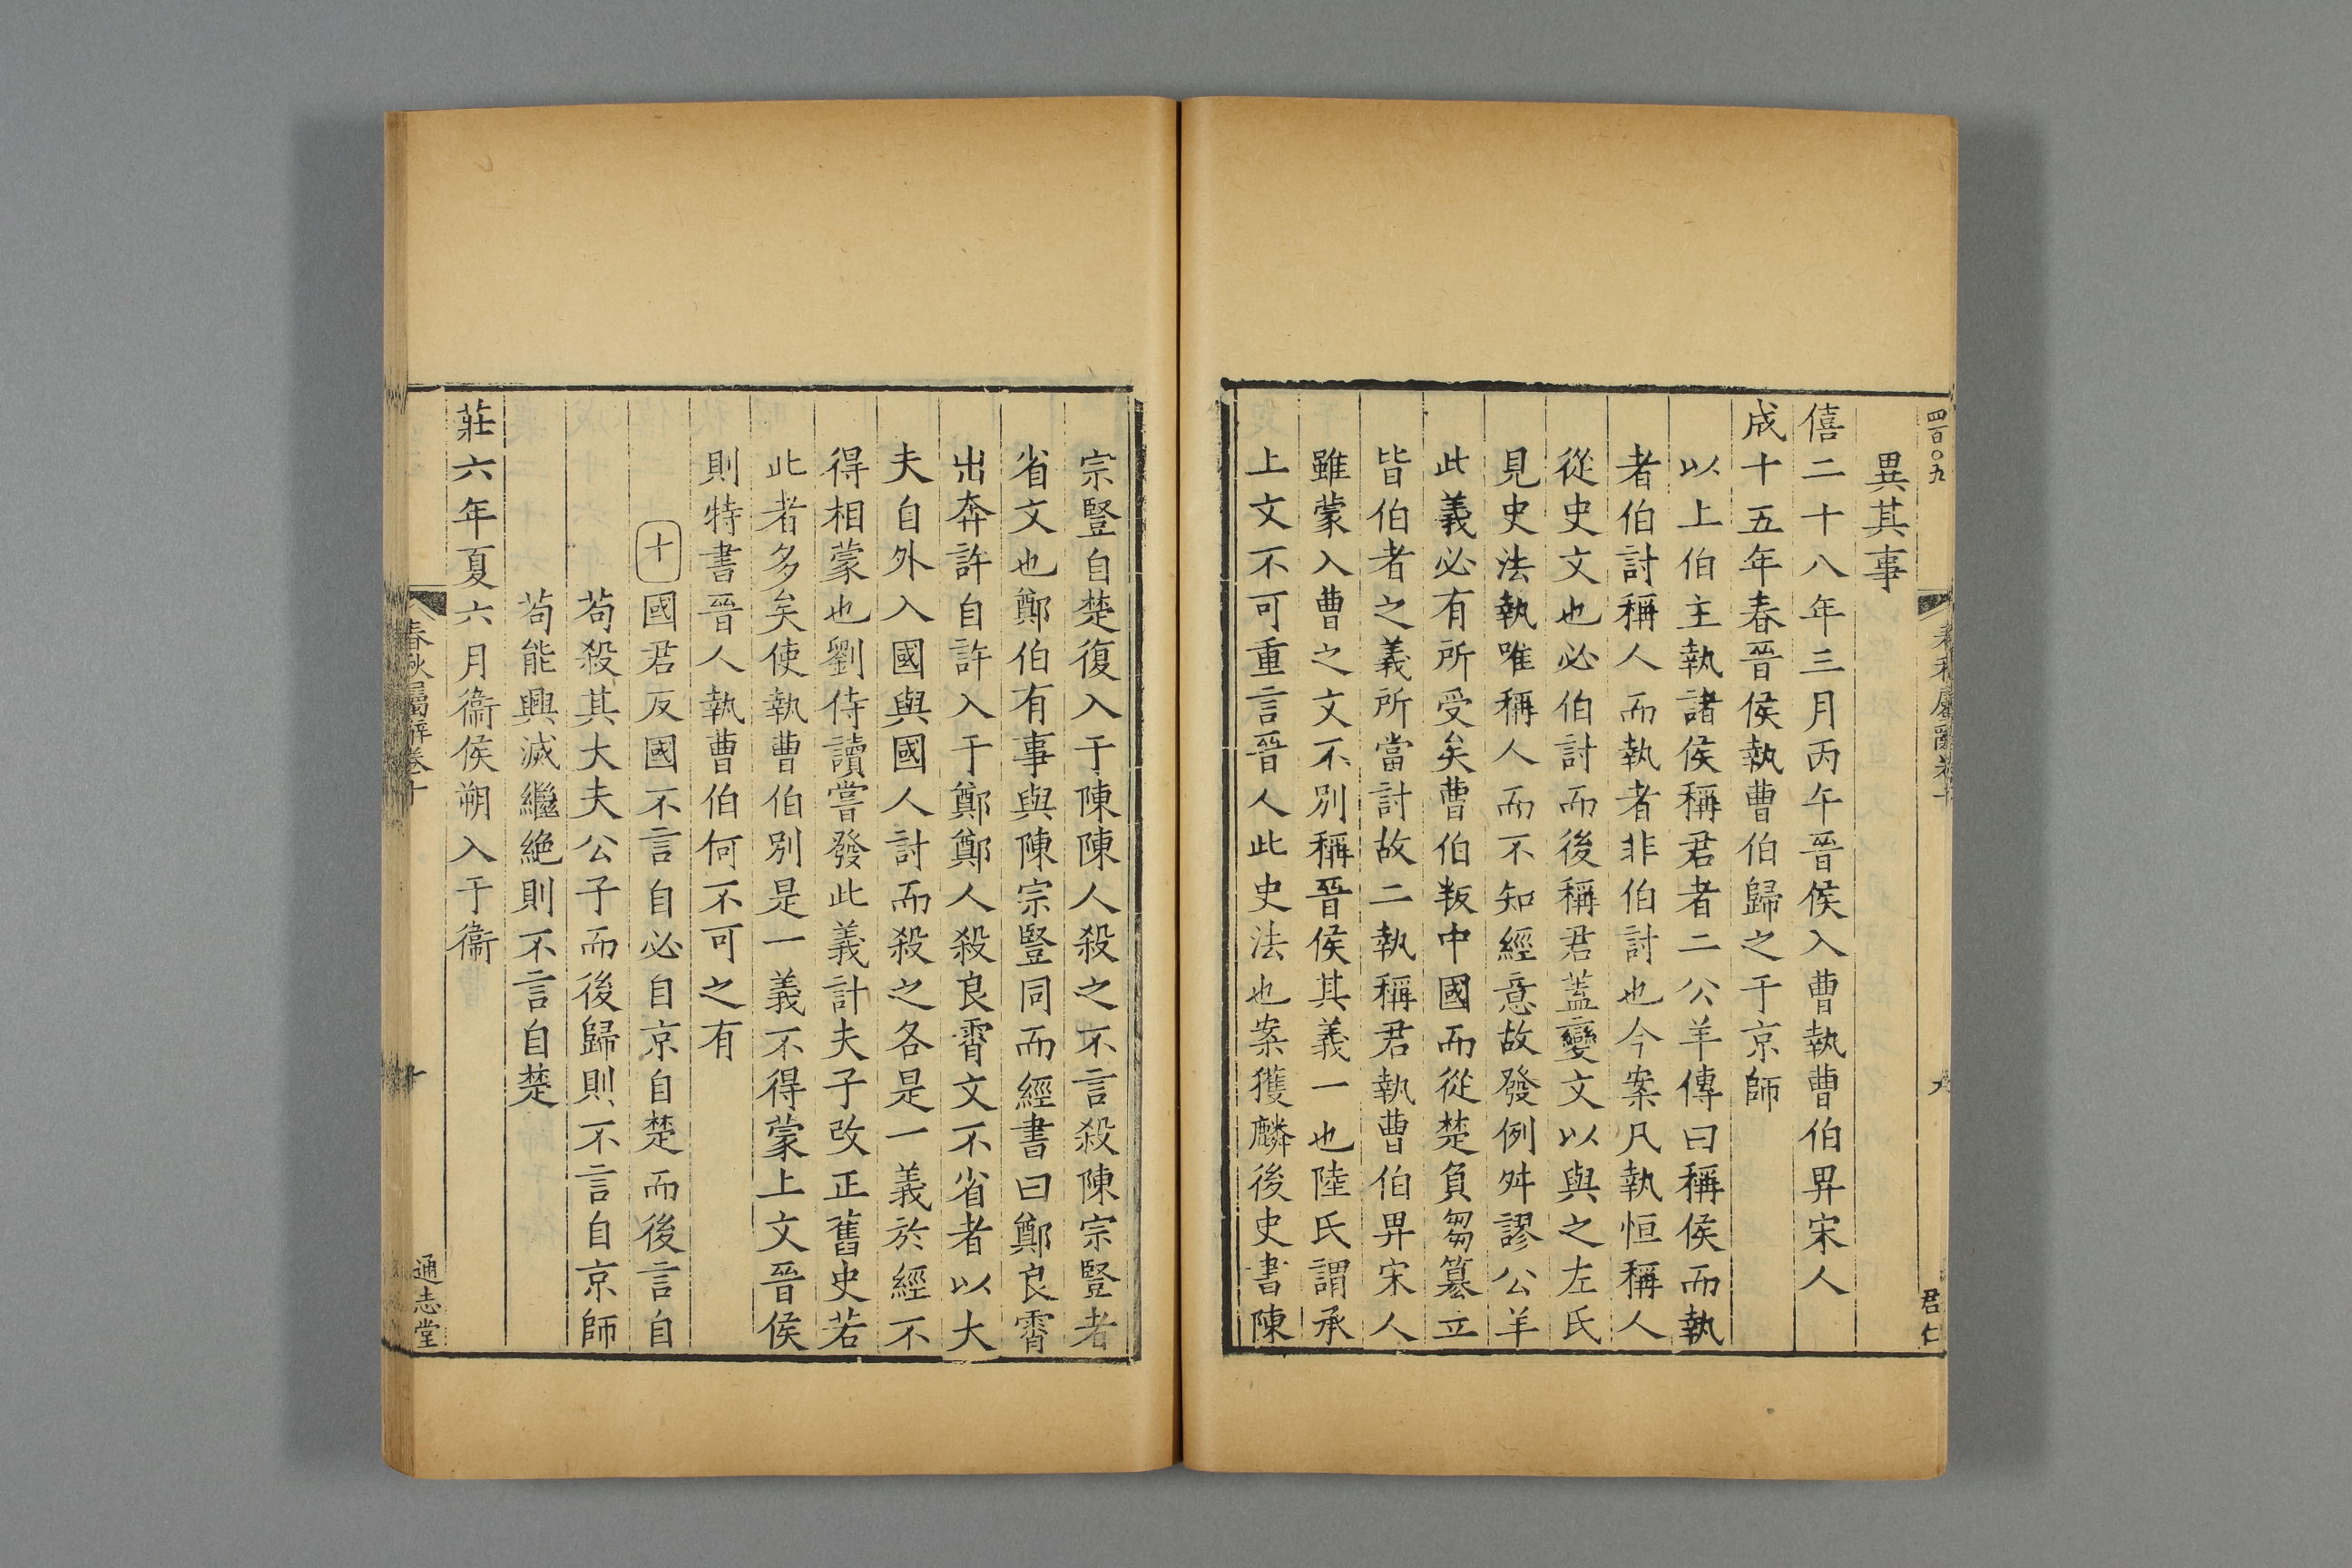 四百○九
春秋屬辭卷十
九
君仁
異其事
僖二十八年三月丙午晉侯入曹執曹伯畀宋人
成十五年春晉侯執曹伯歸之于京師
以上伯主執諸侯稱君者二公羊傳曰稱侯而執
者伯討稱人而執者非伯討也今案凡執恒稱人
從史文也必伯討而後稱君蓋變文以與之左氏
見史法執唯稱人而不知經意故發例舛謬公羊
此義必有所受矣曹伯叛中國而從楚負芻簒立
皆伯者之義所當討故二執稱君執曹伯畀宋人
雖蒙入曹之文不別稱晉侯其義一也陸氏謂承
上文不可重言晉人此史法也案獲麟後史書陳
宗豎自楚復入于陳陳人殺之不言殺陳宗豎者
省文也鄭伯有事與陳宗豎同而經書曰鄭良霄
出奔許自許入于鄭鄭人殺良霄文不省者以大
夫自外入國與國人討而殺之各是一義於經不
得相蒙也劉侍讀嘗發此義計夫子改正舊史若
此者多矣使執曹伯別是一義不得蒙上文晉侯
則特書晉人執曹伯何不可之有
十國君反國不言自必自京自楚而後言自
茍殺其大夫公子而後歸則不言自京師
茍能興滅繼絶則不言自楚
莊六年夏六月衞侯朔入于衞
春秋屬辭卷十
十
通志堂